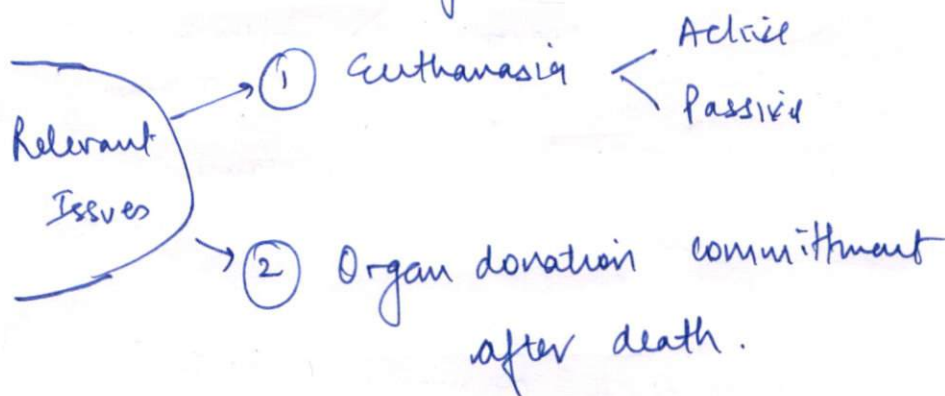 Relevant
Issues
① Euthanasia
Active
Passive
② Organ donation committment
after death.